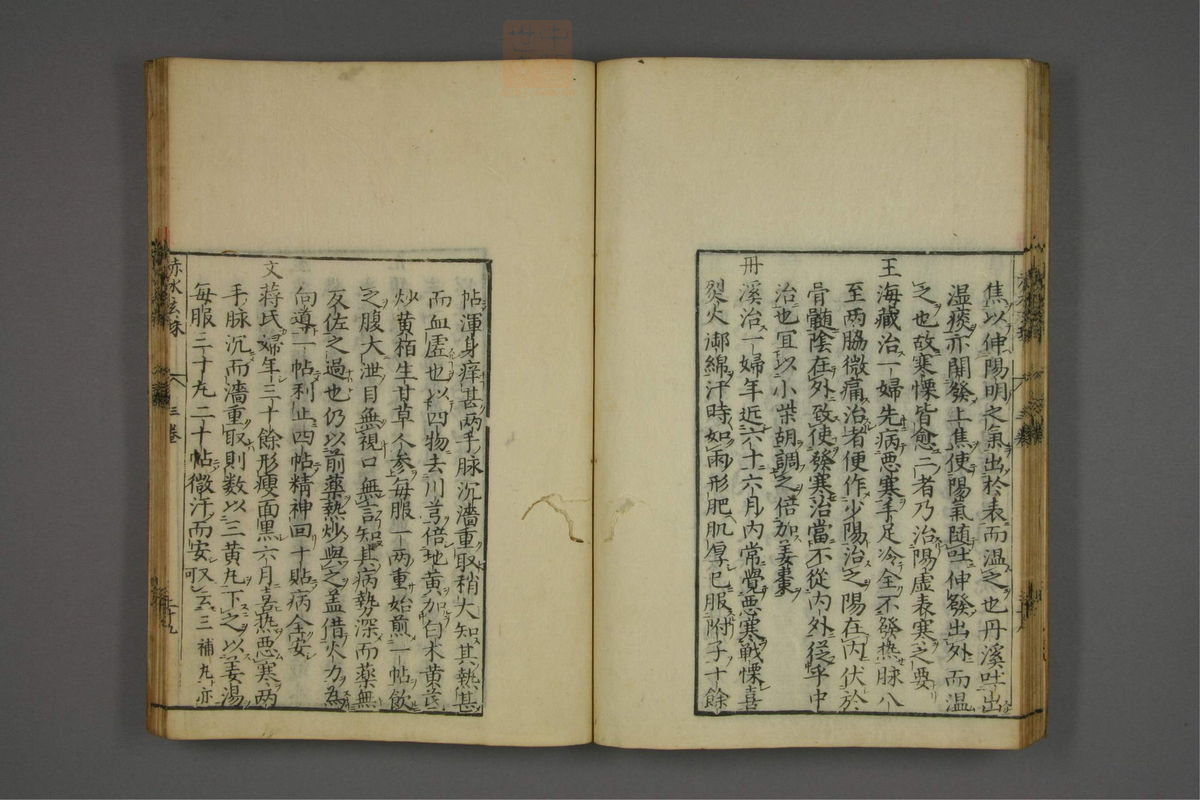 焦以伸陽明之氣出於表而温之也丹溪吐出
湿痰亦開發上焦使陽氣随吐伸發出外而温
之也故寒慄皆愈二者乃治陽虚表寒之要
王海藏治一婦先病悪寒手足冷全不發热脉八
至两脇微痛治者便作少陽治之陽在内伏於
骨髓陰在外致使發寒治當不從内外従乎中
治也宜以小柴胡調之倍加姜棗
丹溪治一婦年近六十六月内常覺悪寒戰慄喜
烈火御綿汗時如雨形肥肌厚已服附子十餘
帖渾身痒甚两手脉沉濇重取稍大知其熱甚
而血虚也以四物去川芎倍地黄加白术黄芪
炒黄栢生甘草人参每服一两重始煎一帖飲
之腹大泄目無視口無言知其病勢深而藥無
反佐之過也仍以前藥熱炒與之盖借火力為
向導一帖利止四帖精神回十貼病全安
文蒋氏婦年三十餘形瘦面黒六月喜热悪寒两
手脉沉而濇重取則数以三黄丸下之以姜湯
每服三十丸二十帖微汗而安又云三補丸亦可
赤水玄珠 三卷 二十九